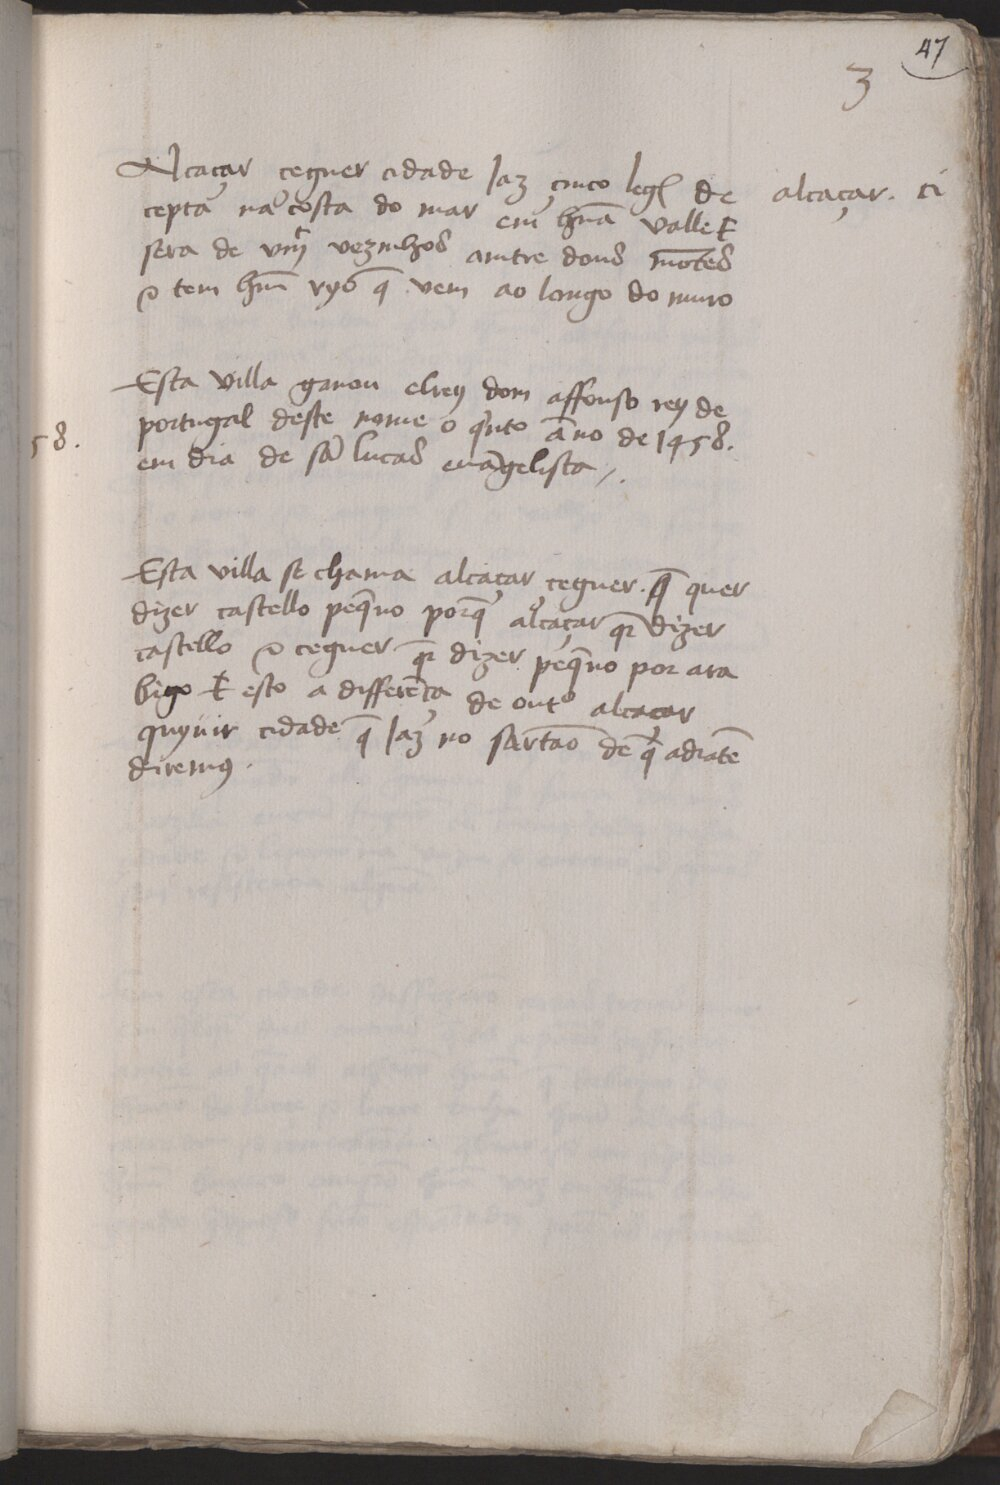 47
3
Alcaçar ceguer cidade Jaz cinco leg̃ de
alcaçar. ci
cepta na costa do mar em hũa valle E
sera de viij vezinhos antre dous mõtes
e tem hũ ryo q̃ vem ao longo do muro
Esta villa ganou elrey dom affonso rey de
portugal deste nome o qũto ãno de 1458.
58.
em dia de sã lucas euãgelista /.
Esta villa se chama alcaçar ceguer. q̃ quer
dizer castello peq̃no porq̃ alcaçar qr̃ dizer
castello e ceguer qr̃ dizer peq̃no por ara
bigo E esto a differẽça de outº alcaçar
quyuir cidade q̃ Jaz no sertaõ de q̃ adiãte
diremꝰ.